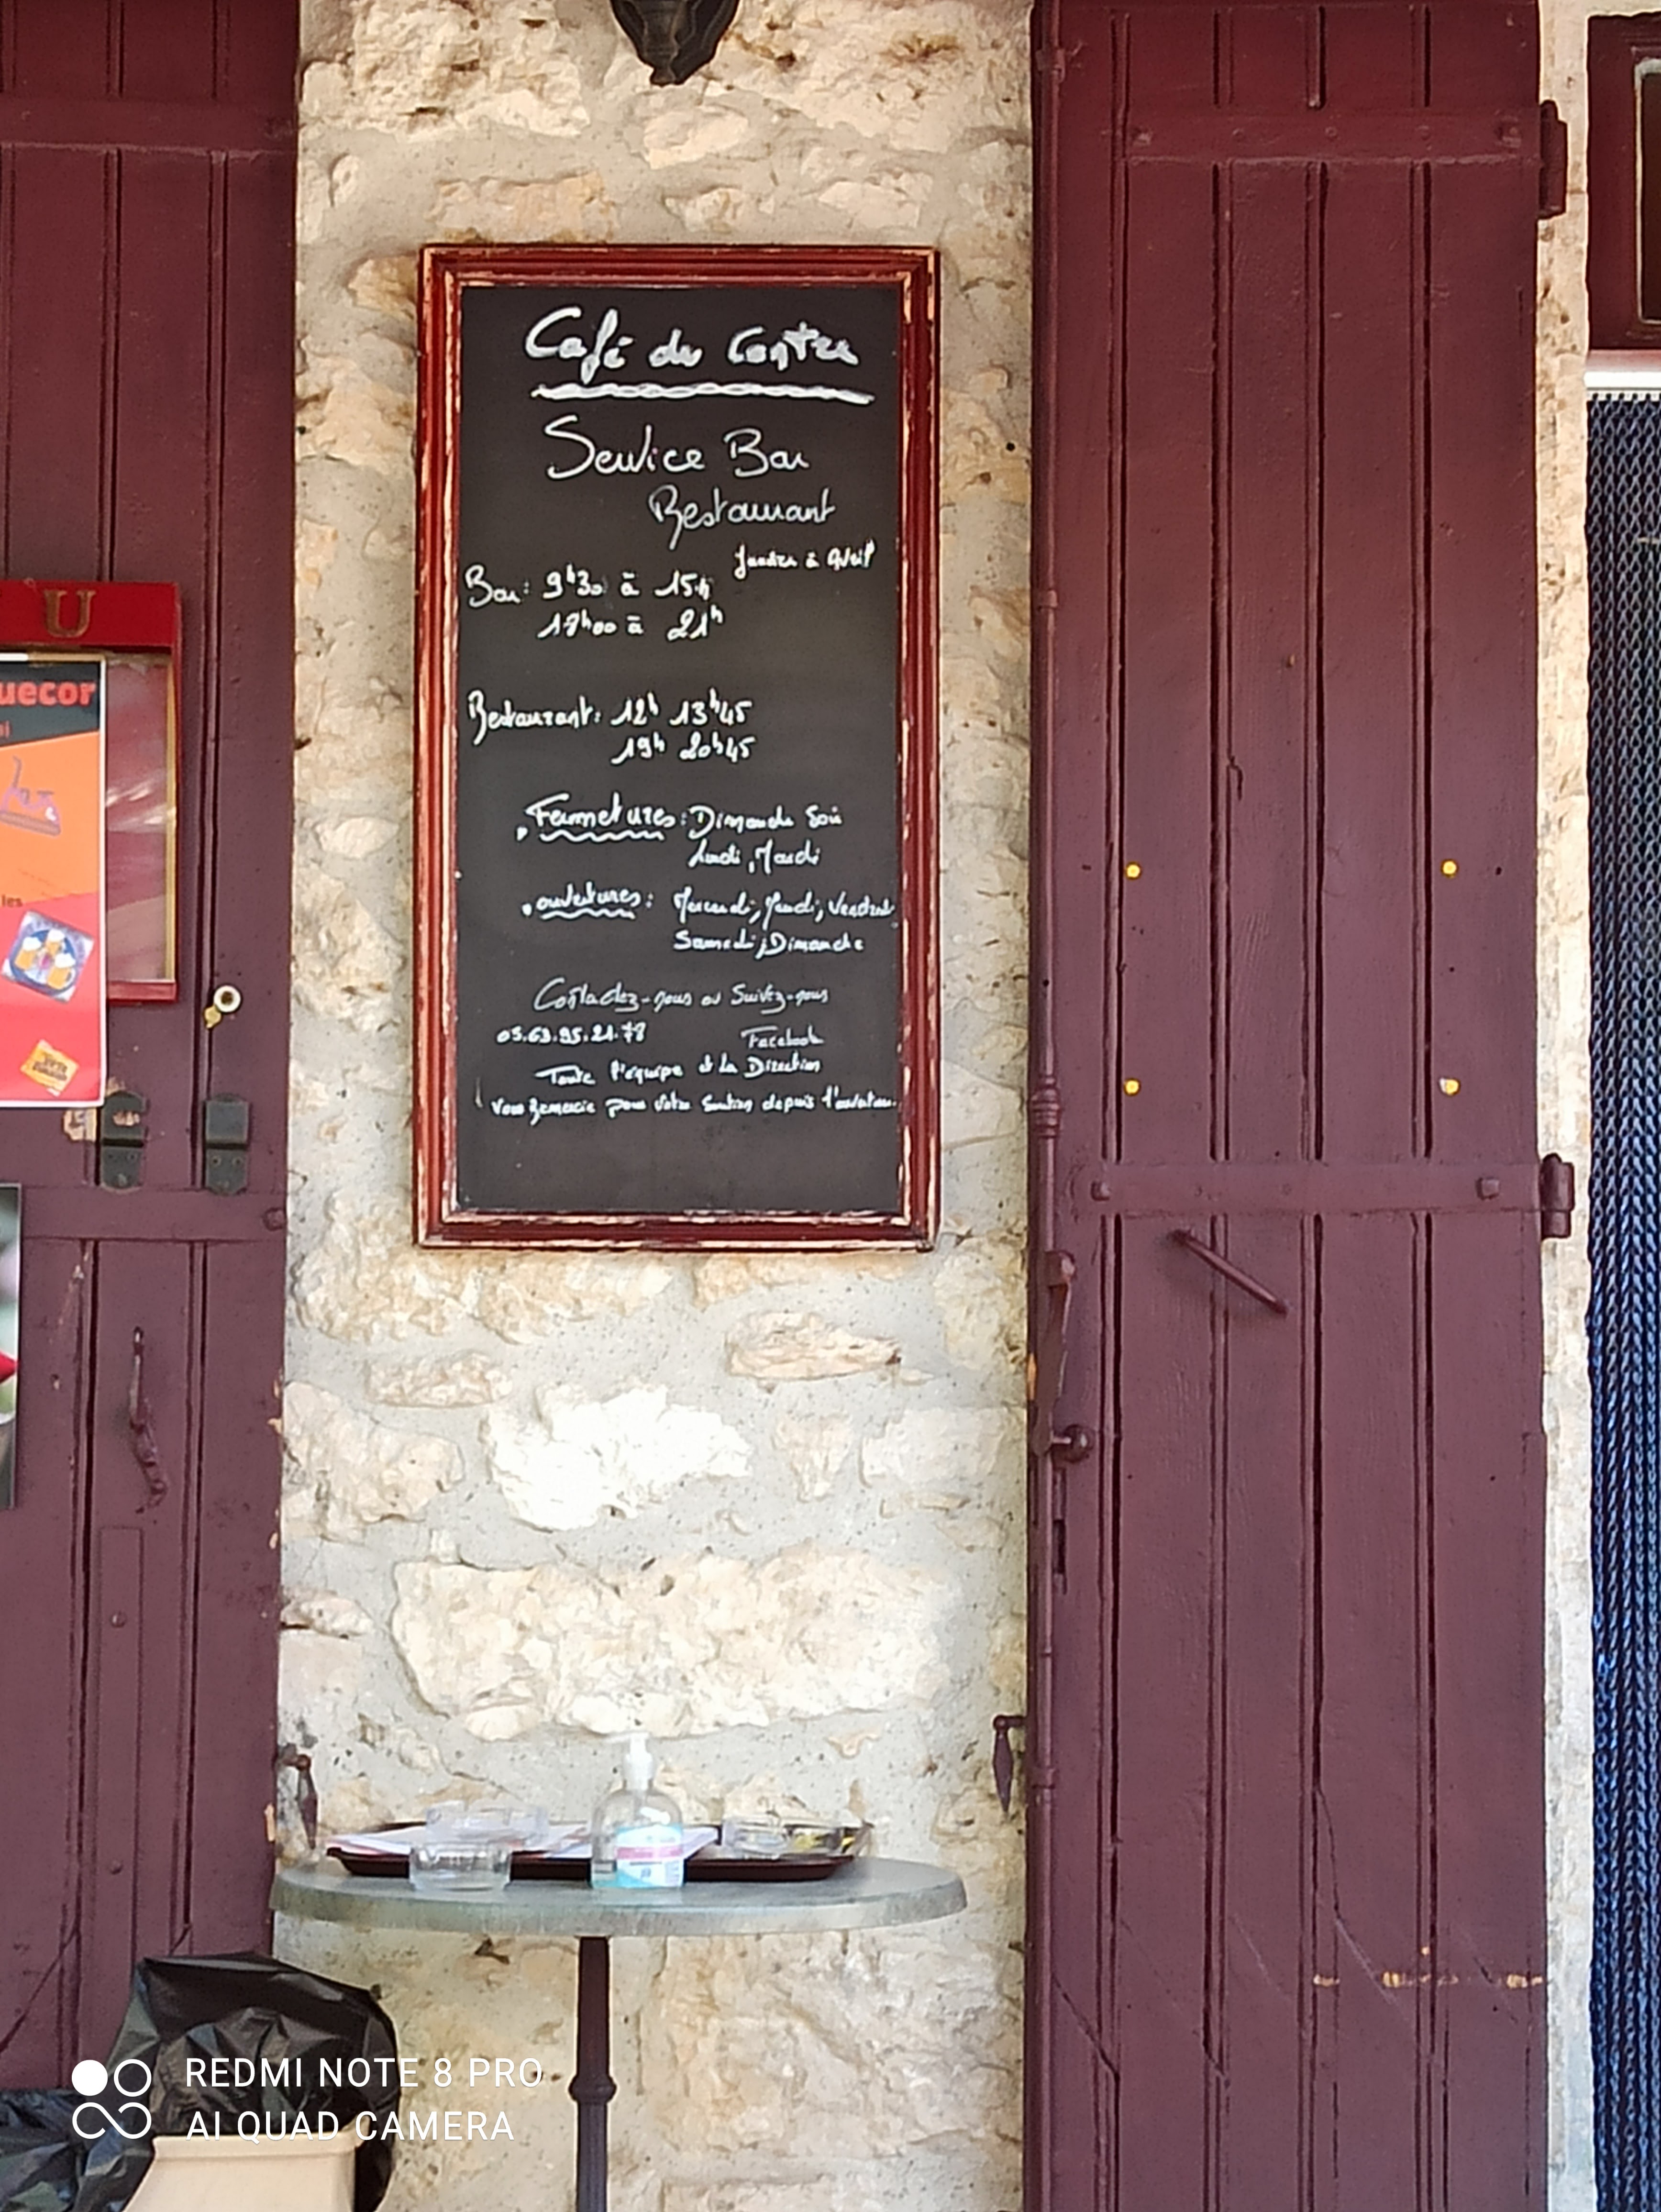 Café du Centre
Service Bar
Restaurant
Janvier à Avril
Bar: 9h30 à 15h
17h00 à 21h
Restaurant: 12h 13h45
19h 20h45
Fermetures: Dimanche Soir
Lundi, Mardi
ouvertures: Mercredi, Jeudi, Vendredi
Samedi, Dimanche
Contactez-nous ou Suivez-nous
05.63.95.21.78 Facebook
Toute l'équipe et la Direction
vous remercie pour votre soutien depuis l'ouverture.
U
uecor
les
REDMI NOTE 8 PRO
AI QUAD CAMERA